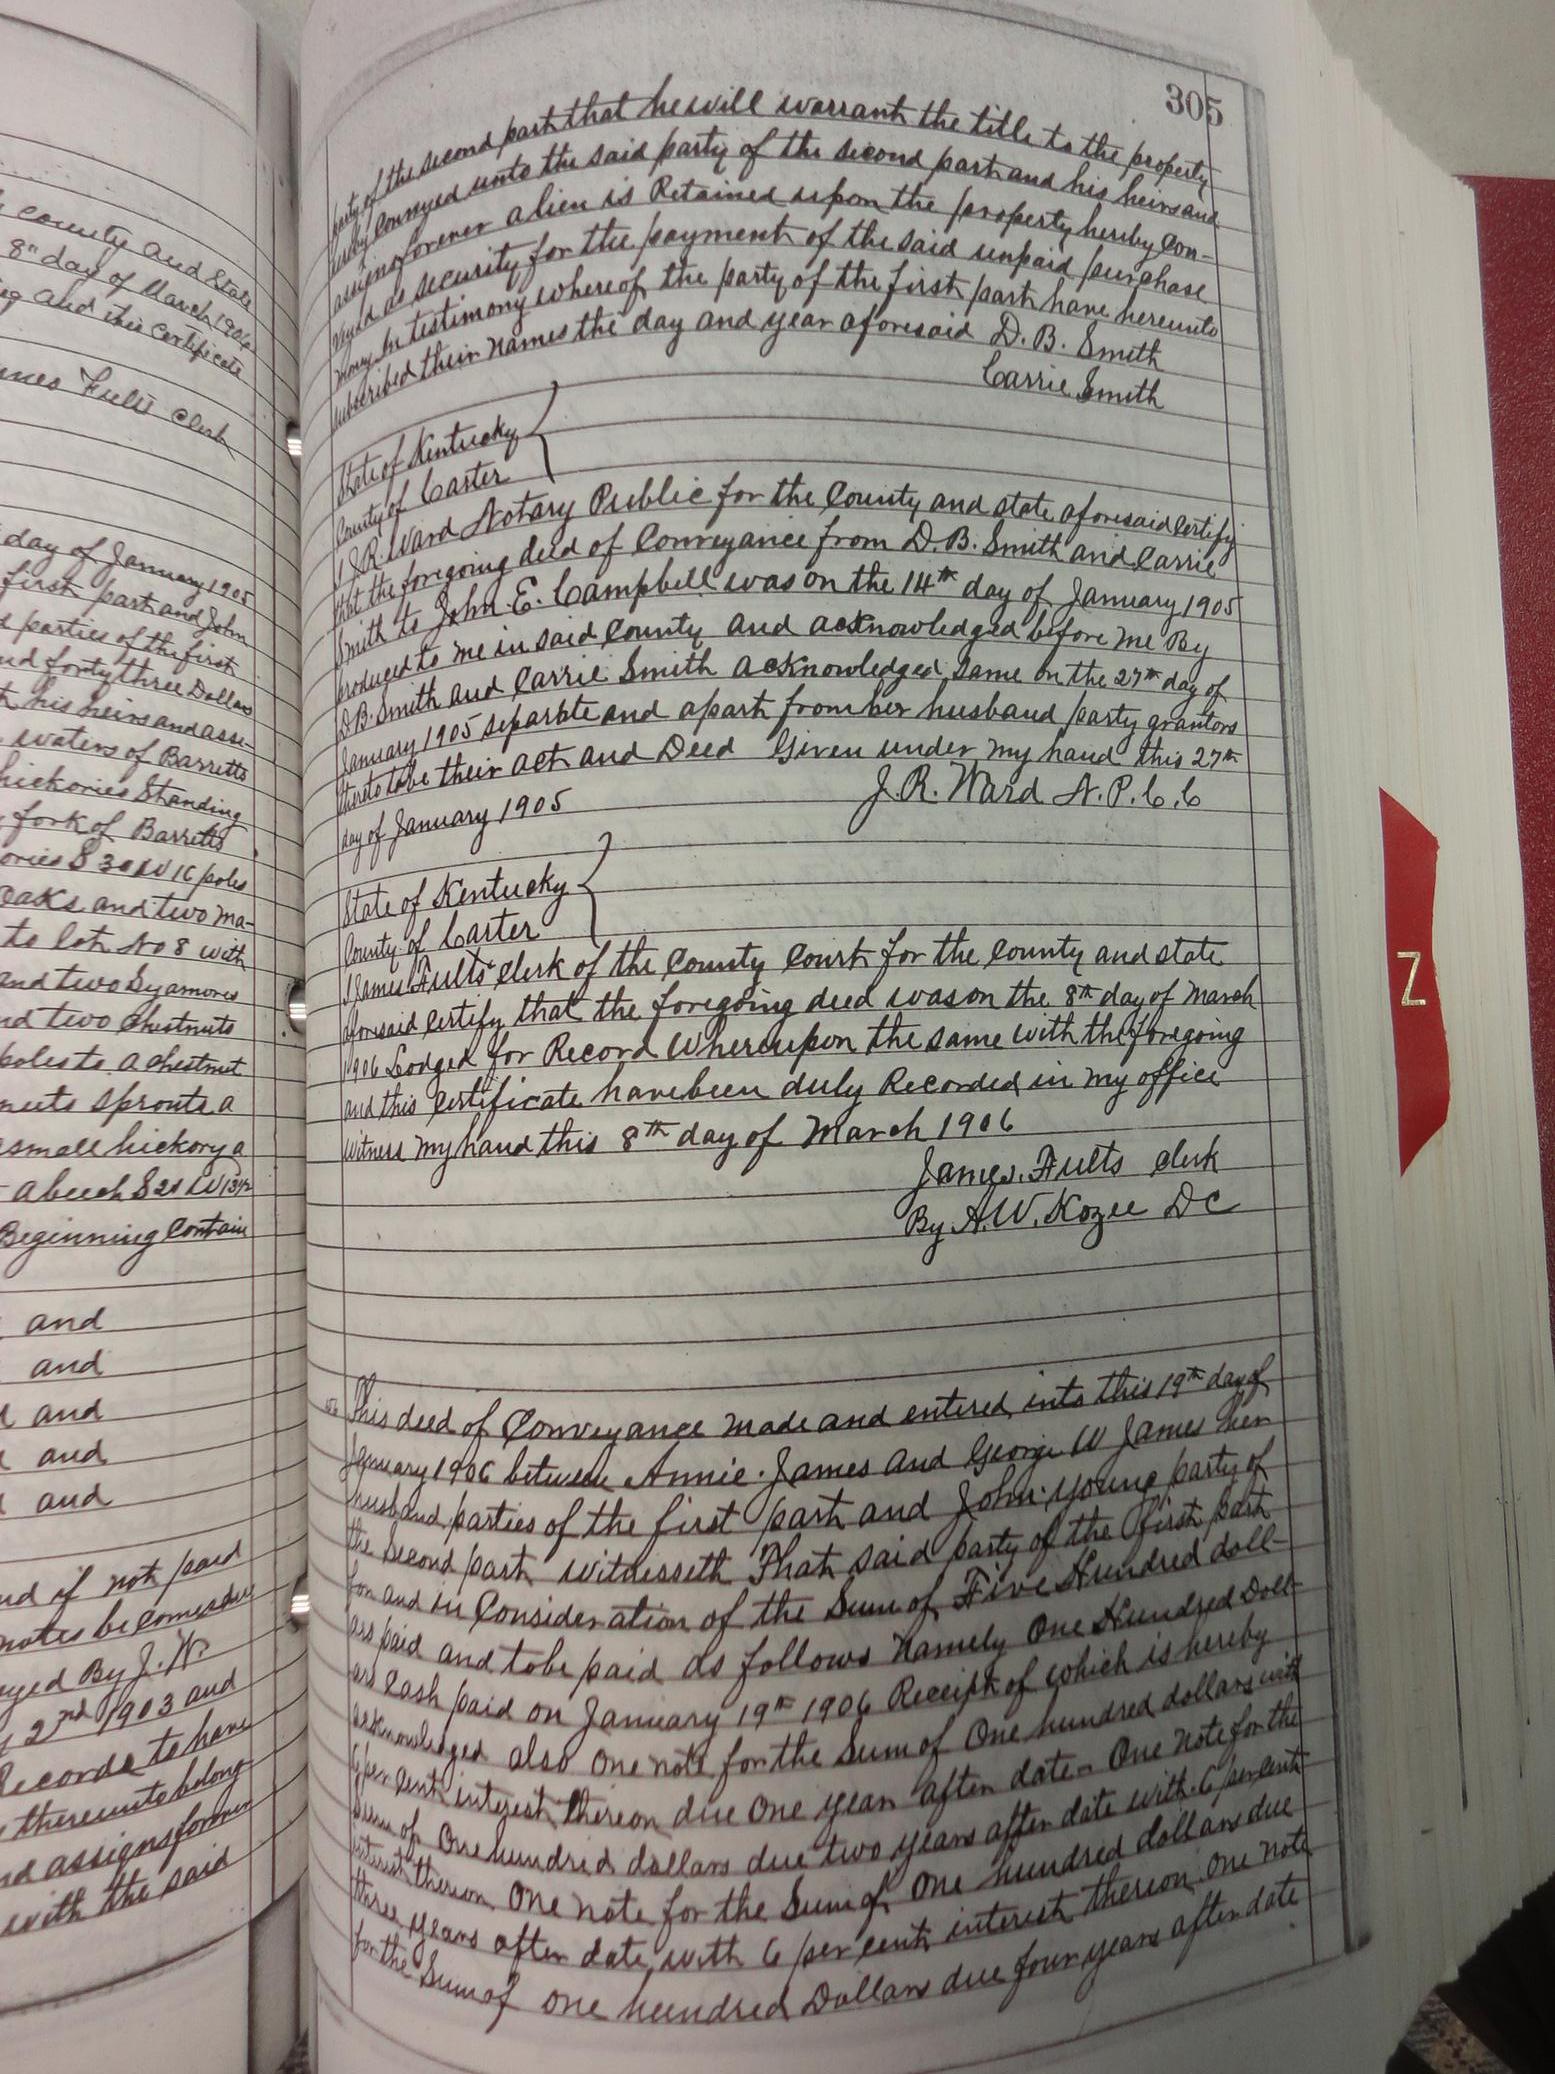 County and State
8th day of March 1906
and this certificate
James Fults Clerk
day of January 1905
first part and John
parties of the first
and forty three Dollars
his heirs and assi-
waters of Barretts
hickories Standing
fork of Barretts
S 30 W 16 poles
oaks and two ma-
to lot No 8 with
and two Sycamores
and two Chestnuts
poles to a chestnut
sprouts a
small hickory a
a beech S 21 W 13 1/2
Beginning Contain
and
and
and
and
and
and if not paid
notes becomes due
By J. W.
2nd 1903 and
Records to have
thereunto belong
and assigns forever
with the said
305
party of the second part that he will warrant the title to the property
hereby Conveyed unto the said party of the second part and his heirs and
assigns forever a lien is Retained upon the property hereby Con-
veyed as security for the payment of the said unpaid purchase
money In testimony whereof the party of the first part have hereunto
subscribed their names the day and year aforesaid D. B. Smith
Carrie Smith
State of Kentucky
County of Carter
I J. R. Ward Notary Public for the County and state aforesaid Certify
that the foregoing deed of Conveyance from D. B. Smith and Carrie
Smith to John. E. Campbell was on the 14th day of January 1905
produced to me in said County and acknowledged before me By
D. B. Smith and Carrie Smith acknowledged same on the 27th day of
January 1905 separate and apart from her husband party grantors
thereto to be their act and Deed Given under my hand this 27th
day of January 1905 J. R. Ward N. P. C. C
State of Kentucky
County of Carter
I James Fults Clerk of the County Court for the County and state
aforesaid Certify that the foregoing deed was on the 8th day of March
1906 Lodged for Record Whereupon the same with the foregoing
and this Certificate have been duly Recorded in my office
Witness my hand this 8th day of March 1906
James. Fults Clerk
By A. W. Kozee D C
This deed of Conveyance made and entered into this 19th day of
January 1906 between Annie. James and George W James her
husband parties of the first part and John. Young party of
the Second part Witnesseth That said party of the first part
for and in Consideration of the Sum of Five Hundred doll-
ars paid and to be paid as follows Namely One Hundred Doll-
ars Cash paid on January 19th 1906 Receipt of which is hereby
acknowledged also one note for the Sum of One hundred dollars with
6 per cent interest thereon due One year after date - One Note for the
Sum of One hundred dollars due two years after date with 6 per cent
interest thereon One note for the Sum of One hundred dollars due
three years after date with 6 per cent interest thereon One Note
for the Sum of one hundred Dollars due four years after date
Z